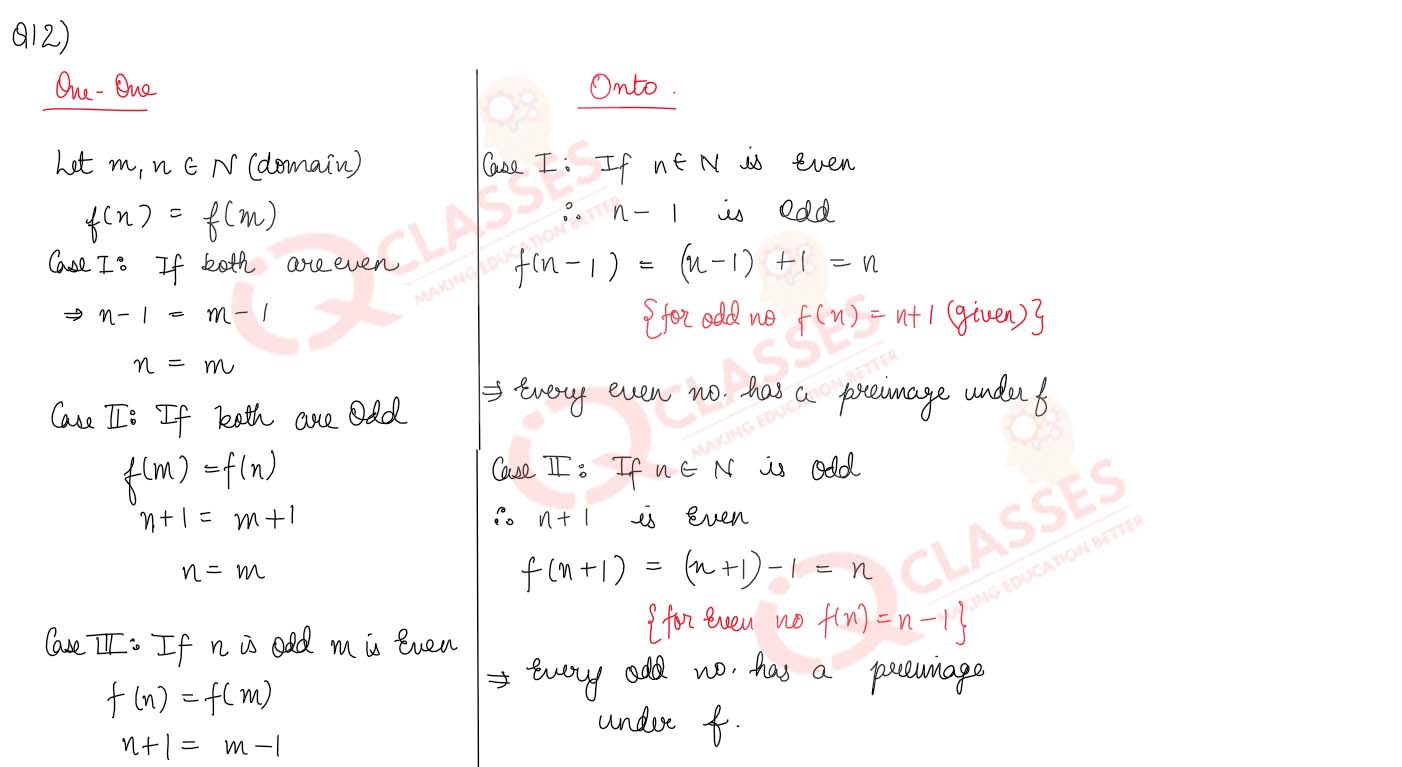 Q12)
One-One
Let m, n ∈ N (domain)
f(n) = f(m)
Case I: If both are even
⇒ n-1 = m-1
n = m
Case II: If both are Odd
f(m) = f(n)
n+1 = m+1
n = m
Case III: If n is odd m is Even
f(n) = f(m)
n+1 = m-1
Onto.
Case I: If n ∈ N is Even
∴ n-1 is Odd
f(n-1) = (n-1) +1 = n
{for odd no f(n) = n+1 (given)}
⇒ Every even no. has a preimage under f
Case II: If n ∈ N is odd
∴ n+1 is Even
f(n+1) = (n+1)-1 = n
{for Even no f(n) = n-1}
⇒ Every odd no. has a preimage
under f.
IQ CLASSES
MAKING EDUCATION BETTER
IQ CLASSES
MAKING EDUCATION BETTER
IQ CLASSES
MAKING EDUCATION BETTER